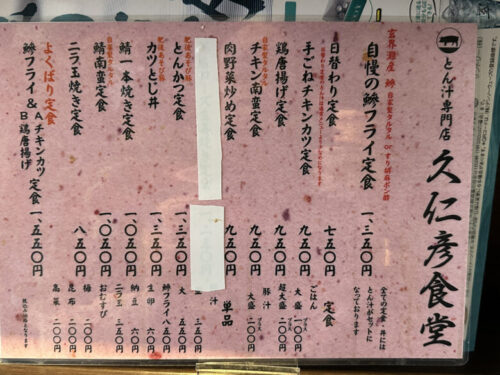 とん汁専門店
久仁彦食堂
全ての定食・丼には
とん汁がセットに
なっております
玄界灘産 鯵 自家製タルタル orすり胡麻ポン酢
自慢の鯵フライ定食 一、三五〇円
日替わり定食 七五〇円
手ごねチキンカツ定食 九五〇円
鶏唐揚げ定食 九五〇円
自家製タルタル
チキン南蛮定食 九五〇円
肉野菜炒め定食 九五〇円
肥後あそび豚
とんかつ定食 一、三五〇円
肥後あそび豚
カツとじ丼 一、三五〇円
鯖一本焼き定食 一、〇五〇円
自家製タルタル
鯖南蛮定食 一、〇五〇円
ニラ玉焼き定食 八五〇円
よくばり定食
鯵フライ& Aチキンカツ B鶏唐揚げ 定食 一、五五〇円
定食
ごはん
大盛 プラス一〇〇円
超大盛 プラス二〇〇円
豚汁
大盛 プラス二〇〇円
単品
汁 三五〇円
大 五五〇円
鯵フライ 八五〇円
生卵 六〇円
納豆 六〇円
ニラ玉 一五〇円
おむすび
梅 一〇〇円
昆布 二〇〇円
高菜 二〇〇円